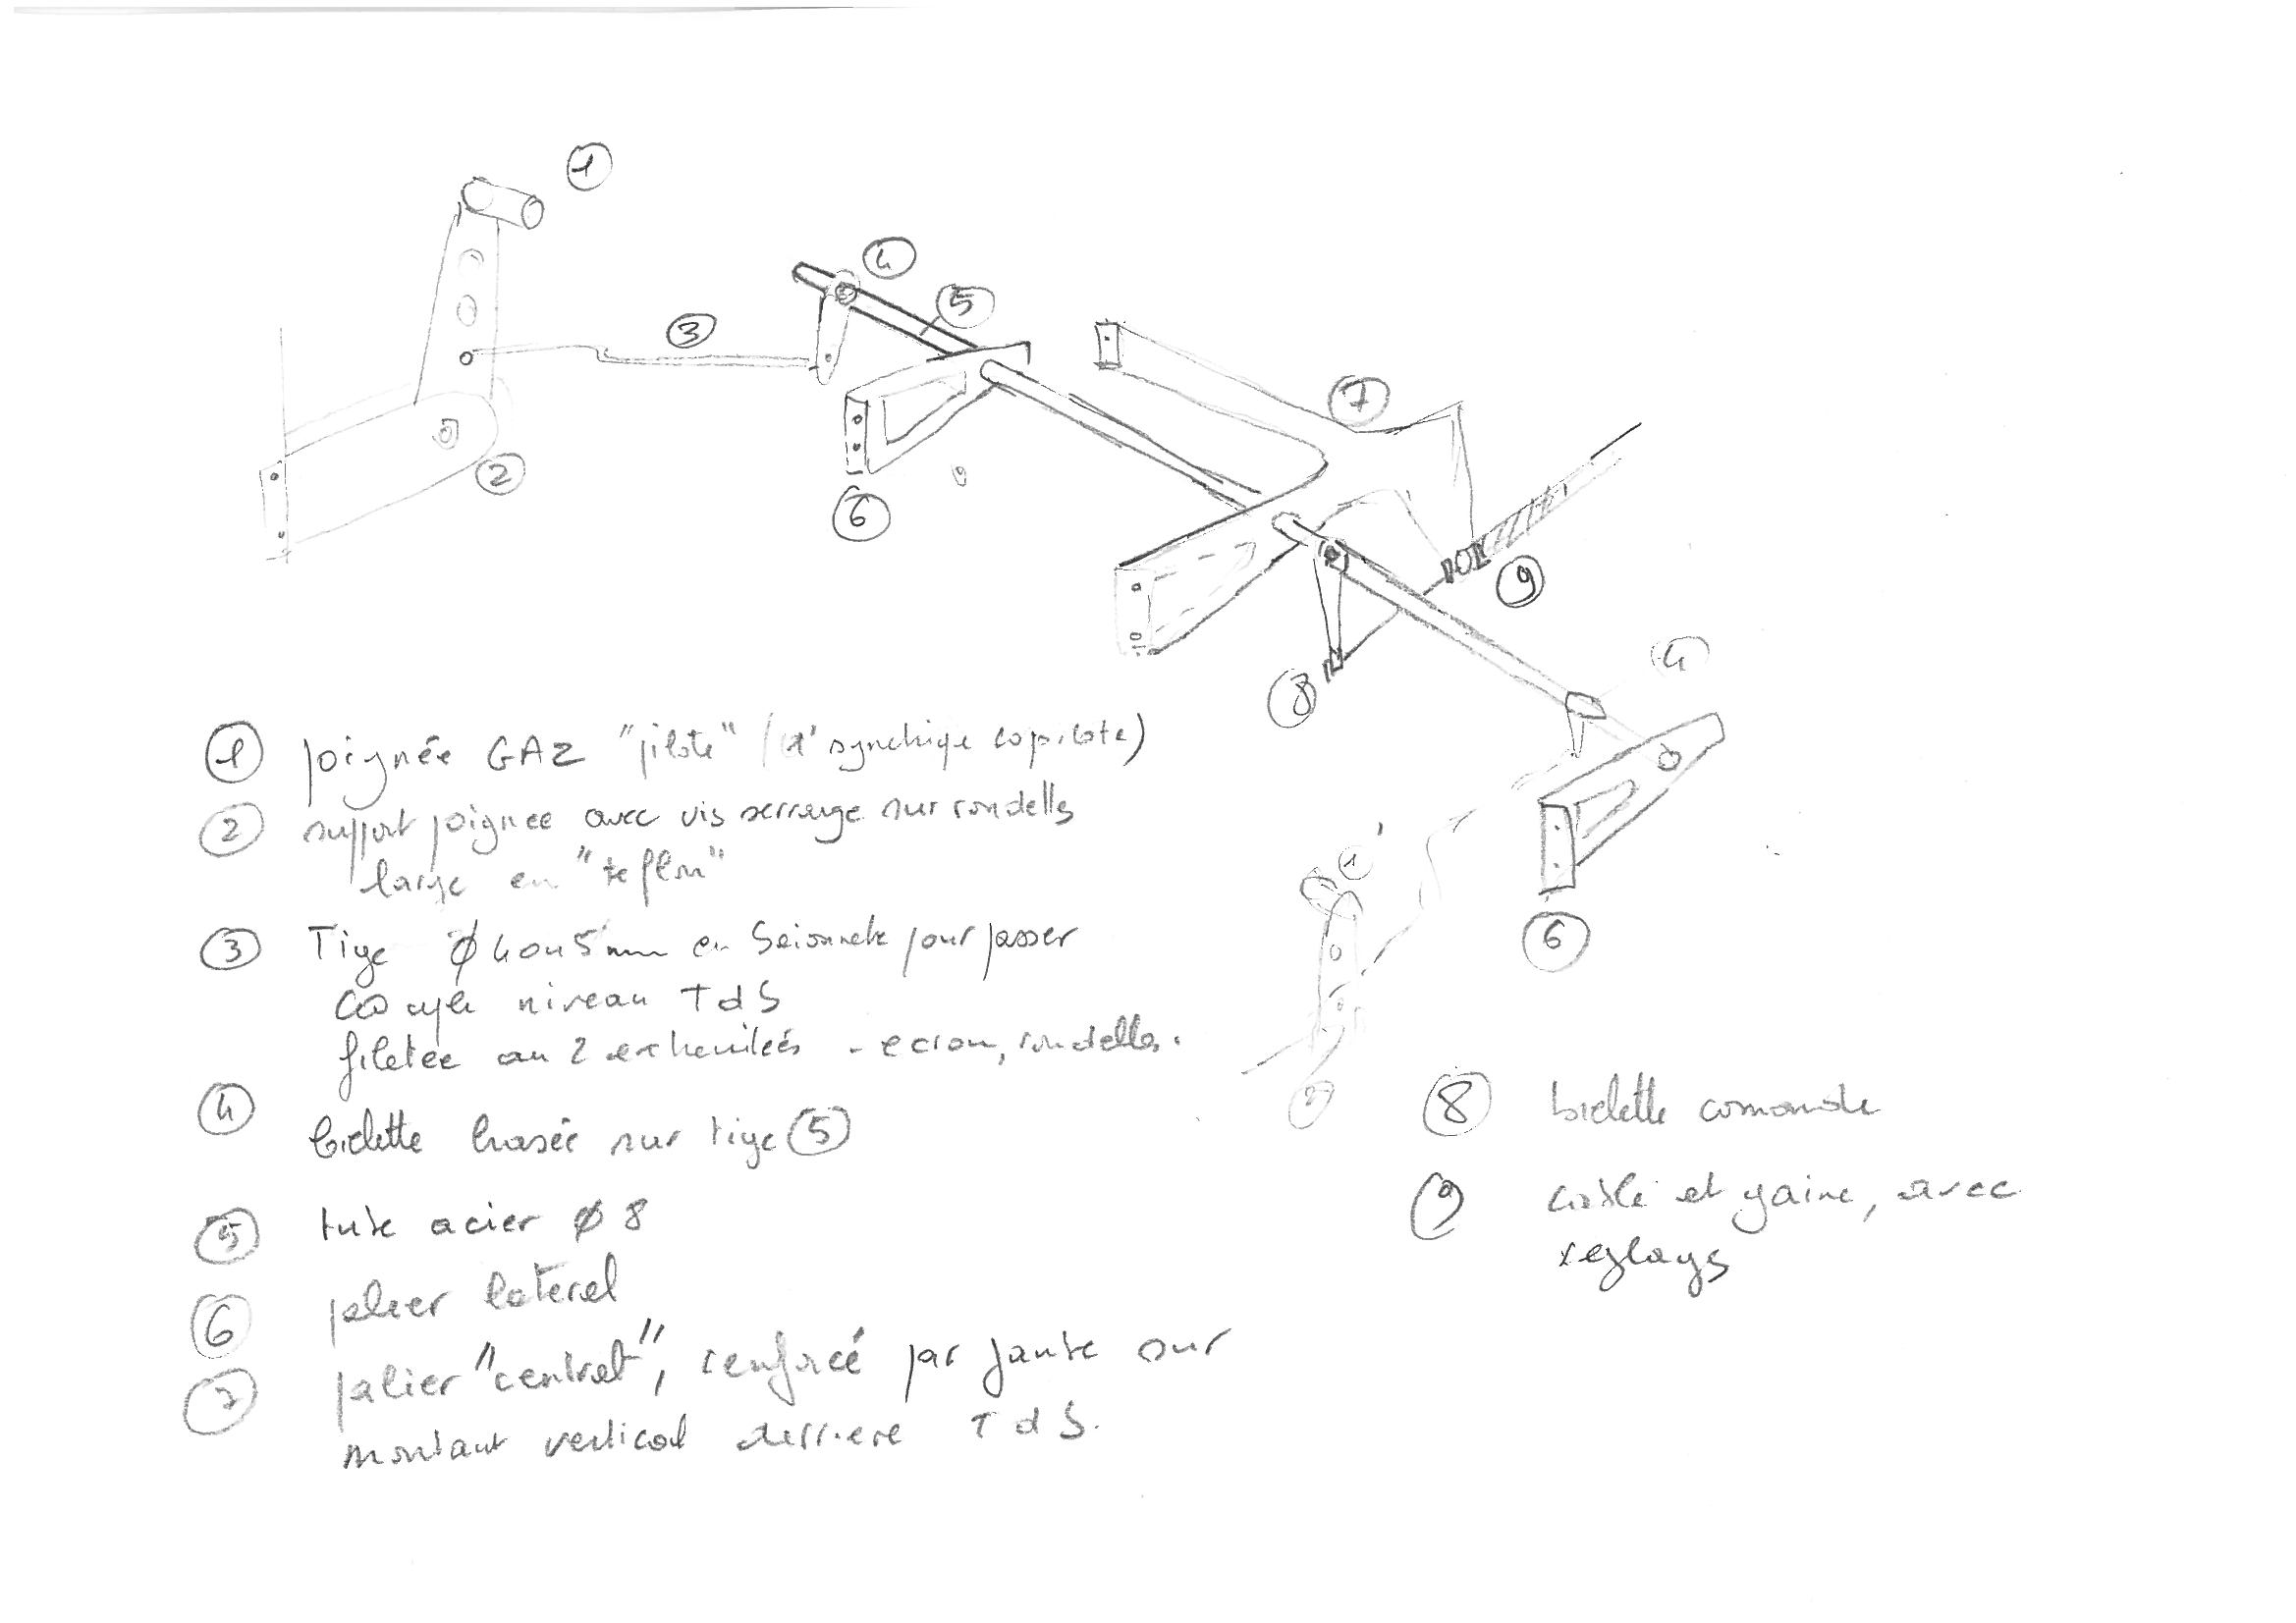 1
4
5
3
7
2
6
9
8
4
1'
6
2
1 poignée GAZ "pilote" (1' symetrique copilote)
2 support poignee avec vis serrage sur rondelles
large en "teflon"
3 Tige Ø 4 ou 5 mm en baionnete pour passer
couple niveau TdS
filetée au 2 extremitées - ecrou, rondelles.
4 biellette brasée sur tige 5
5 tube acier Ø 8
6 palier lateral
7 palier "central", renforcé par jambe sur
montant vertical derriere TdS.
8 biellette comande
9 cable et gaine, avec
reglages